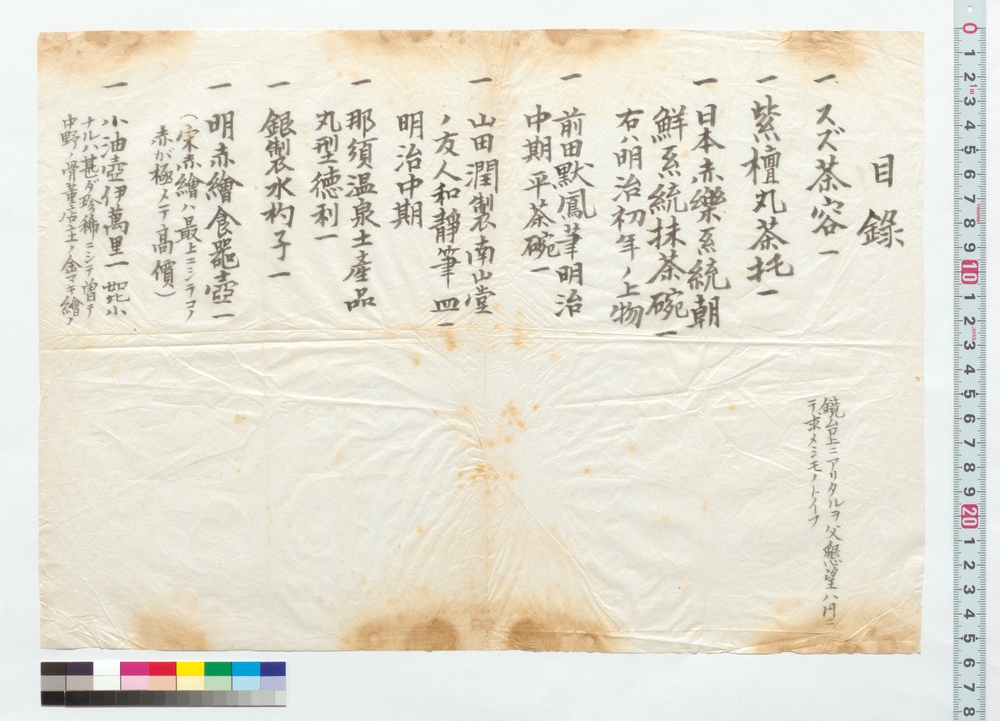 目錄
一 スズ茶容一
一 紫檀丸茶托一
一 日本赤樂系統朝
鮮系統抹茶碗一
右ハ明治初年ノ上物
一 前田默鳳筆明治
中期平茶碗一
一 山田潤製南山堂
ノ友人和靜筆皿一
明治中期
一 那須温泉土產品
丸型徳利一
一 銀製水杓子一
一 明赤繪食噐壺一
(宋赤繪ハ最上ニシテコノ
赤が極メテ高價)
一 小油壺伊萬里一 小
ナルハ甚ダ珍稀ニシテ曽テ
中野ノ骨董店主ノ金マキ繪ノ
鏡台上ニアリタルヲ父懇望八円ニ
テ求メシモノトイフ